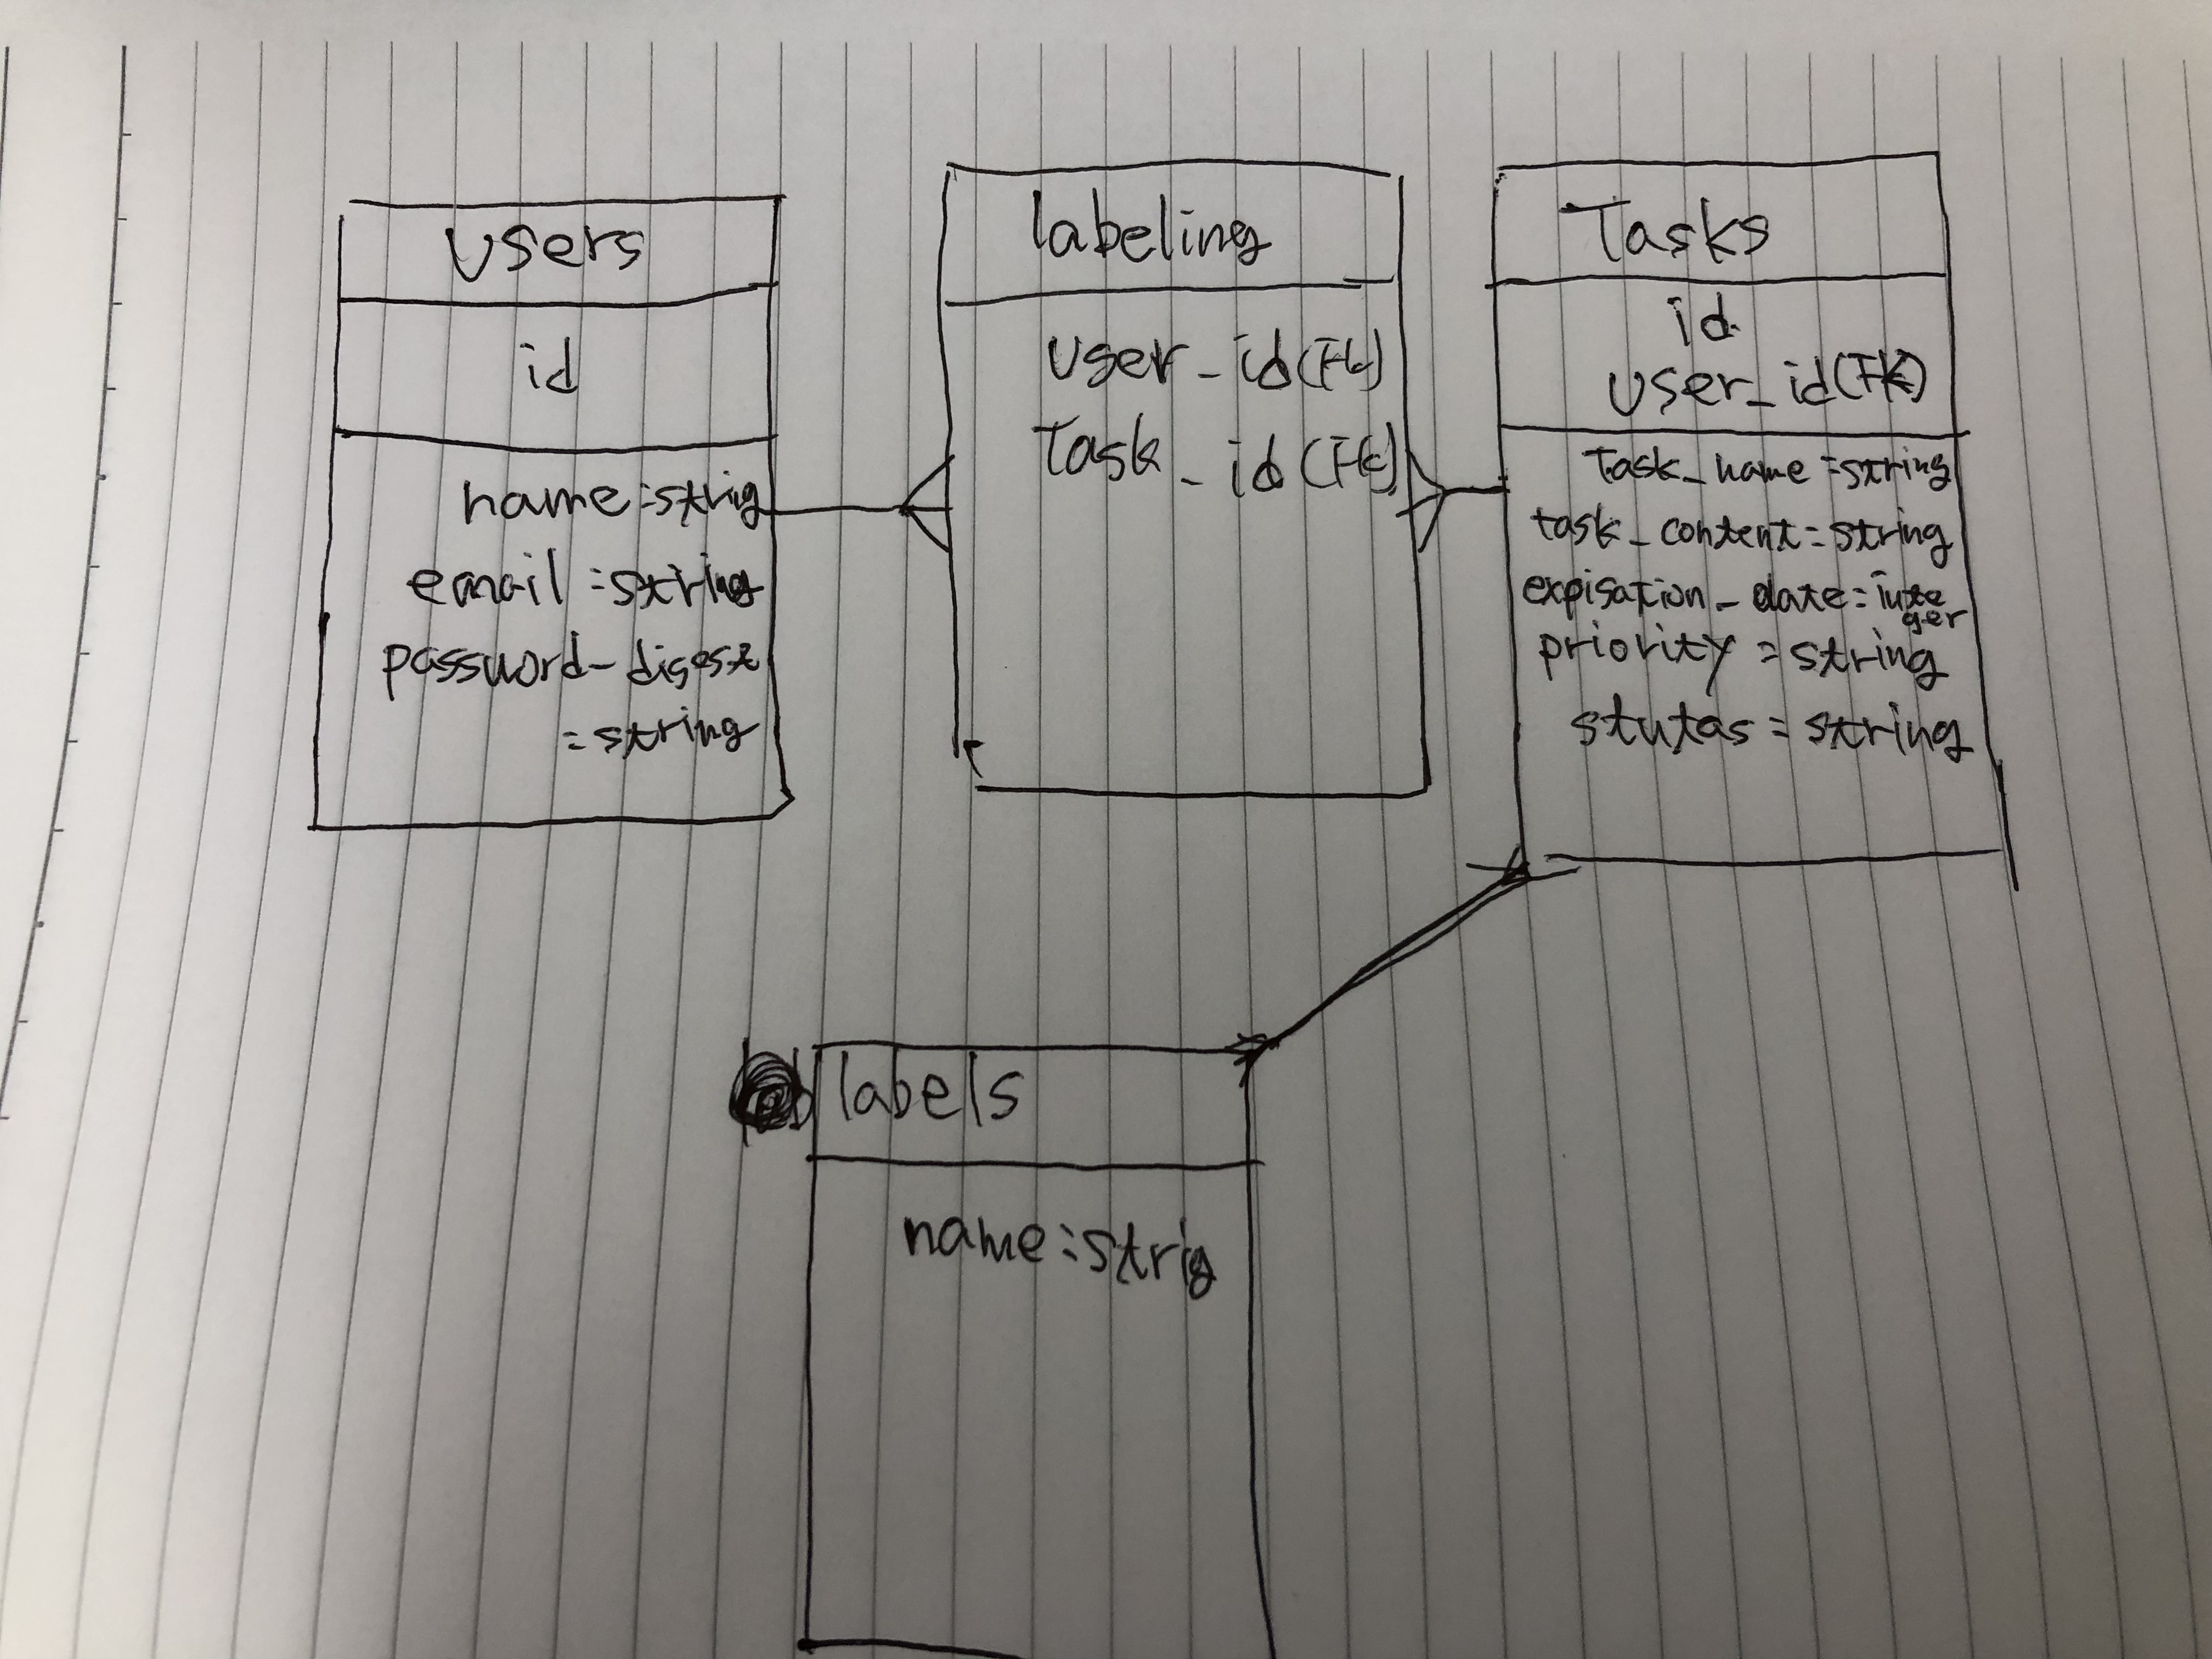 Users
id
name:string
email:string
password-digest
=string
labeling
user-id(FK)
Task-id(FK)
Tasks
id
User-id(FK)
Task-name=string
task-content=string
expisation-date=inte
ger
priority=string
stutas=string
labels
name:string